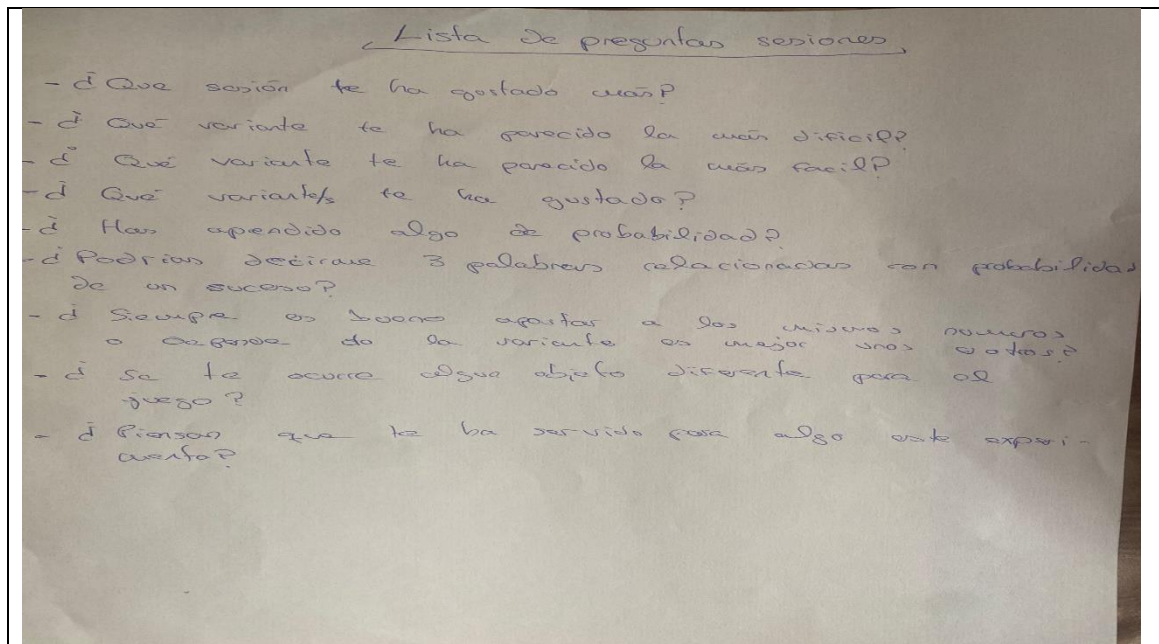 Lista de preguntas sesiones
- ¿Que sesión te ha gostado más?
- ¿Qué variante te ha parecido la más dificil?
- ¿Qué variante te ha parecido la más facil?
- ¿Qué variante/s te ha gustado?
- ¿Has apendido algo de probabilidad?
- ¿Podrias decirme 3 palabras relacionadas con probabilidad
de un suceso?
- ¿Siempre es bueno apostar a los mismos numeros
o depende de la variante es mejor unos o otros?
- ¿Se te ocurre algun objeto diferente para el
juego?
- ¿Piensan que te ha servido para algo este experi-
mento?